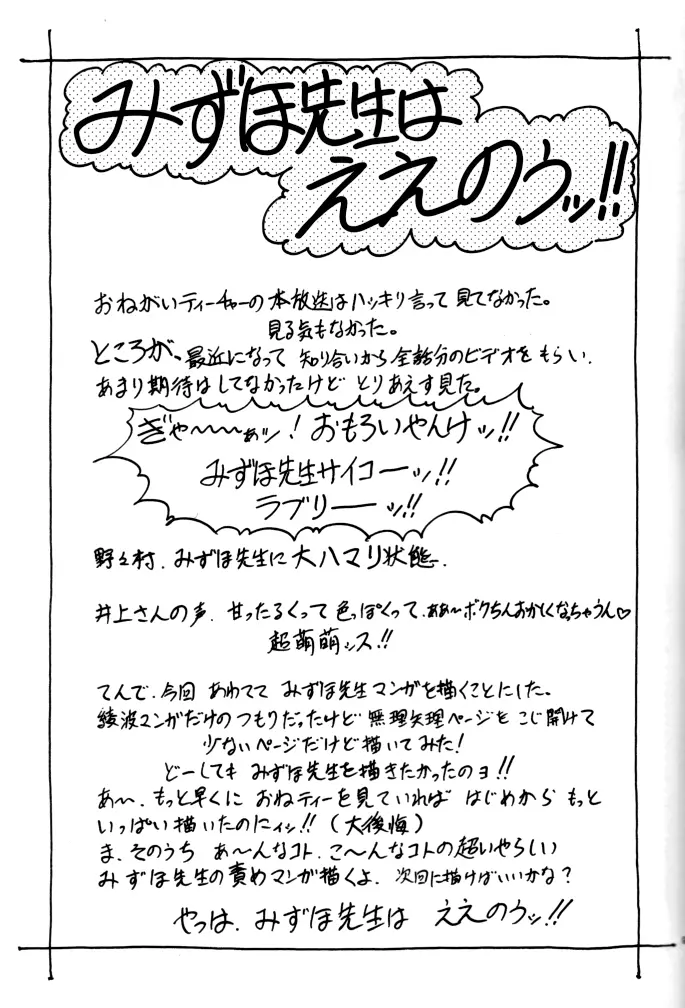 みずほ先生は
ええのうッ!!
おねがいティーチャーの本放送はハッキリ言って見てなかった。
見る気もなかった。
ところが、最近になって 知り合いから全話分のビデオをもらい、
あまり期待はしてなかったけど とりあえず見た。
ぎゃ〜〜〜ぁッ! おもろいやんけッ!!
みずほ先生サイコーーッ!!
ラブリーーッ!!
野々村、みずほ先生に大ハマリ状態。
井上さんの声、甘ったるくって色っぽくって、ああ〜ボクちんおかしくなっちゃうん♡
超萌萌ッス!!
てんで、今回 あわてて みずほ先生マンガを描くことにした。
綾波マンガだけのつもりだったけど 無理矢理ページを こじ開けて
少ないページだけど描いてみた!
どーしても みずほ先生を描きたかったのョ!!
あ〜、もっと早くに おねティーを見ていれば はじめから もっと
いっぱい描いたのにィッ!! (大後悔)
ま、そのうち あ〜んなコト、こ〜んなコトの超いやらしい
みずほ先生の責めマンガ描くよ、次回に描けばいいかな?
やっは、みずほ先生は ええのうッ!!